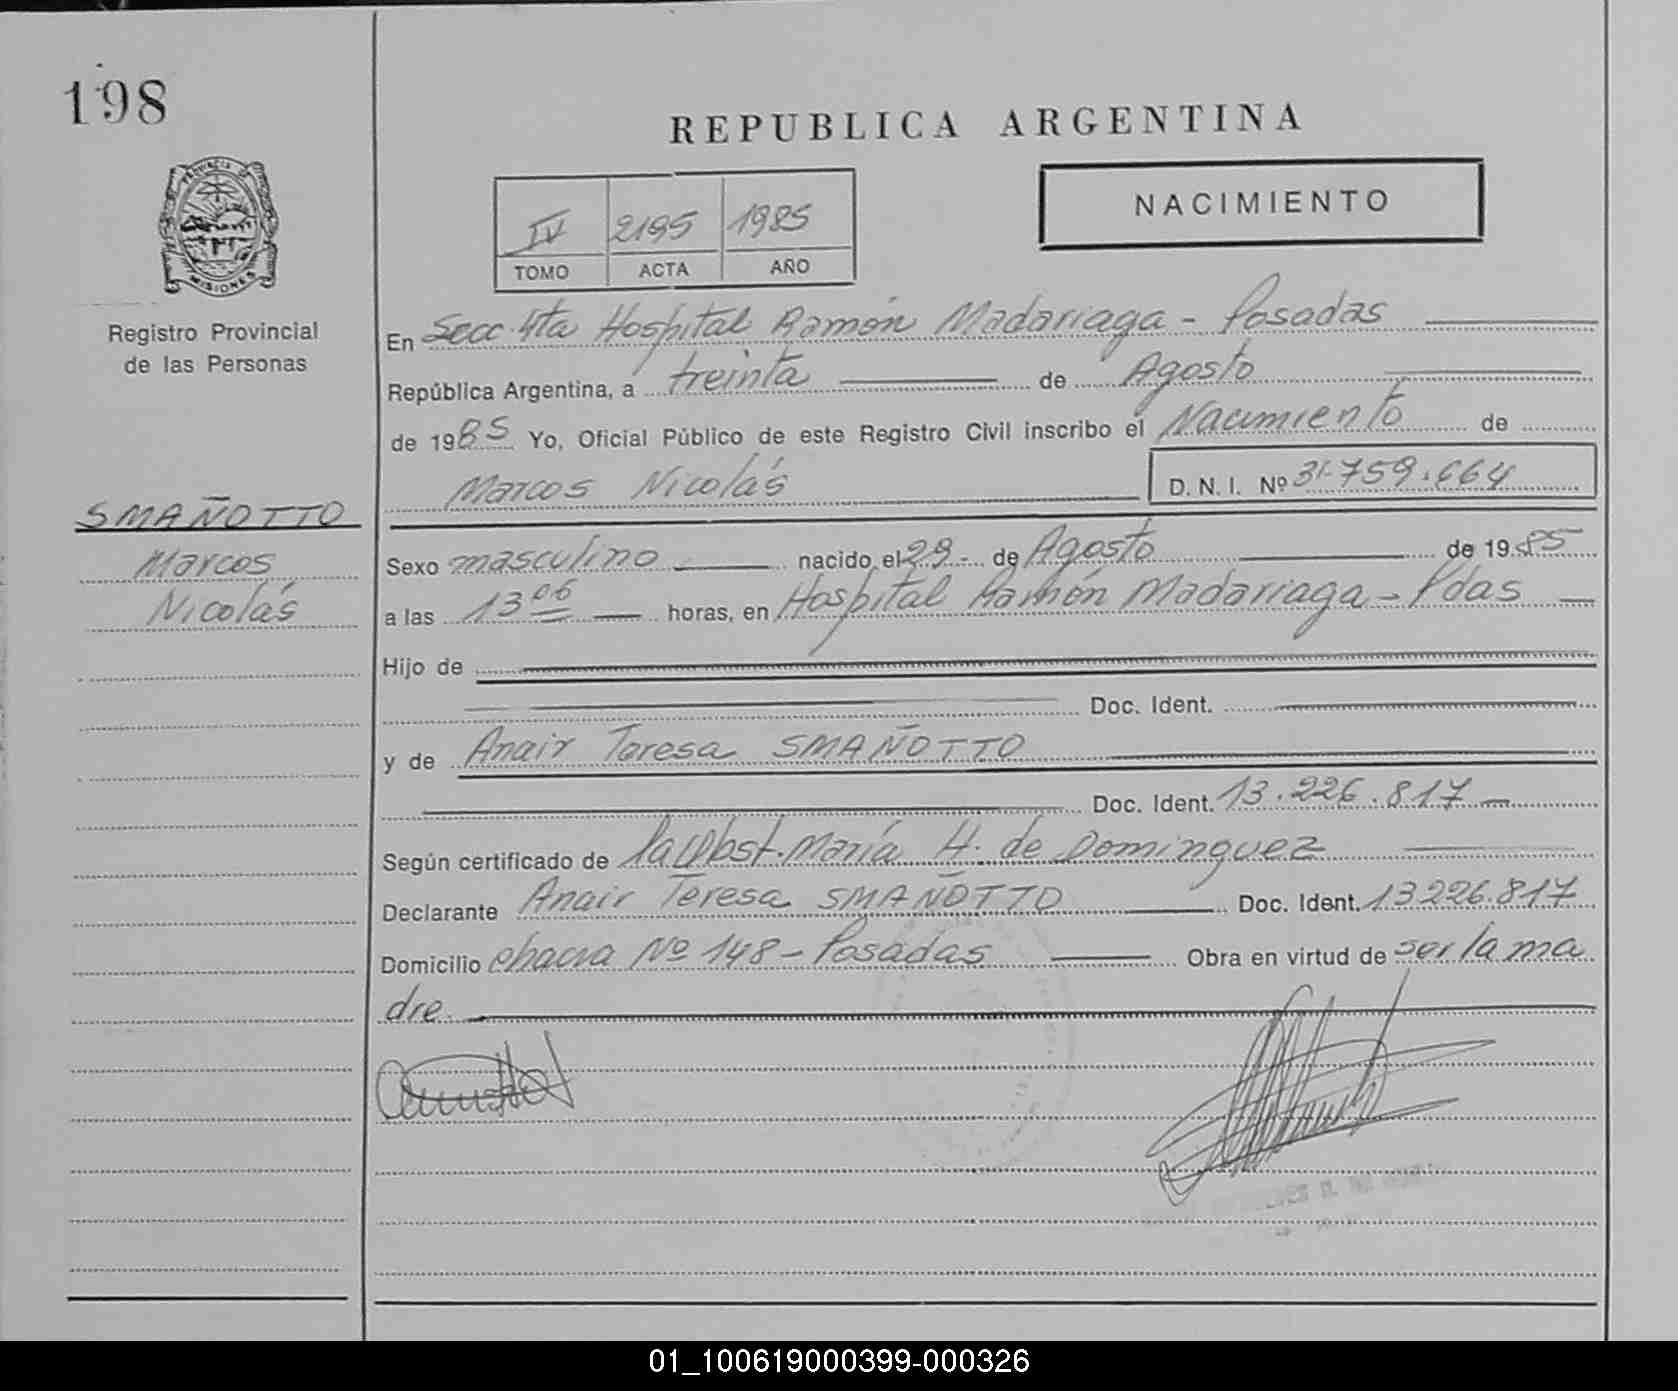 198
REPUBLICA ARGENTINA
PROVINCIA DE MISIONES
IV 2195 1985
TOMO ACTA AÑO
NACIMIENTO
Registro Provincial
de las Personas
En Secc. 4ta Hospital Ramón Madariaga - Posadas
República Argentina, a treinta de Agosto
de 1985 Yo, Oficial Público de este Registro Civil inscribo el Nacimiento de
Marcos Nicolás D. N. I. Nº 31.759.664
SMAÑOTTO
Marcos
Nicolás
Sexo masculino nacido el 29 - de Agosto de 1985
a las 13 06 horas, en Hospital Ramón Madariaga - Pdas
Hijo de
Doc. Ident.
y de Anair Teresa SMAÑOTTO
Doc. Ident. 13.226.817 -
Según certificado de la Obst. María H. de Dominguez
Declarante Anair Teresa SMAÑOTTO Doc. Ident. 13226.817
Domicilio chacra Nº 148 - Posadas Obra en virtud de ser la ma
dre.
01_100619000399-000326